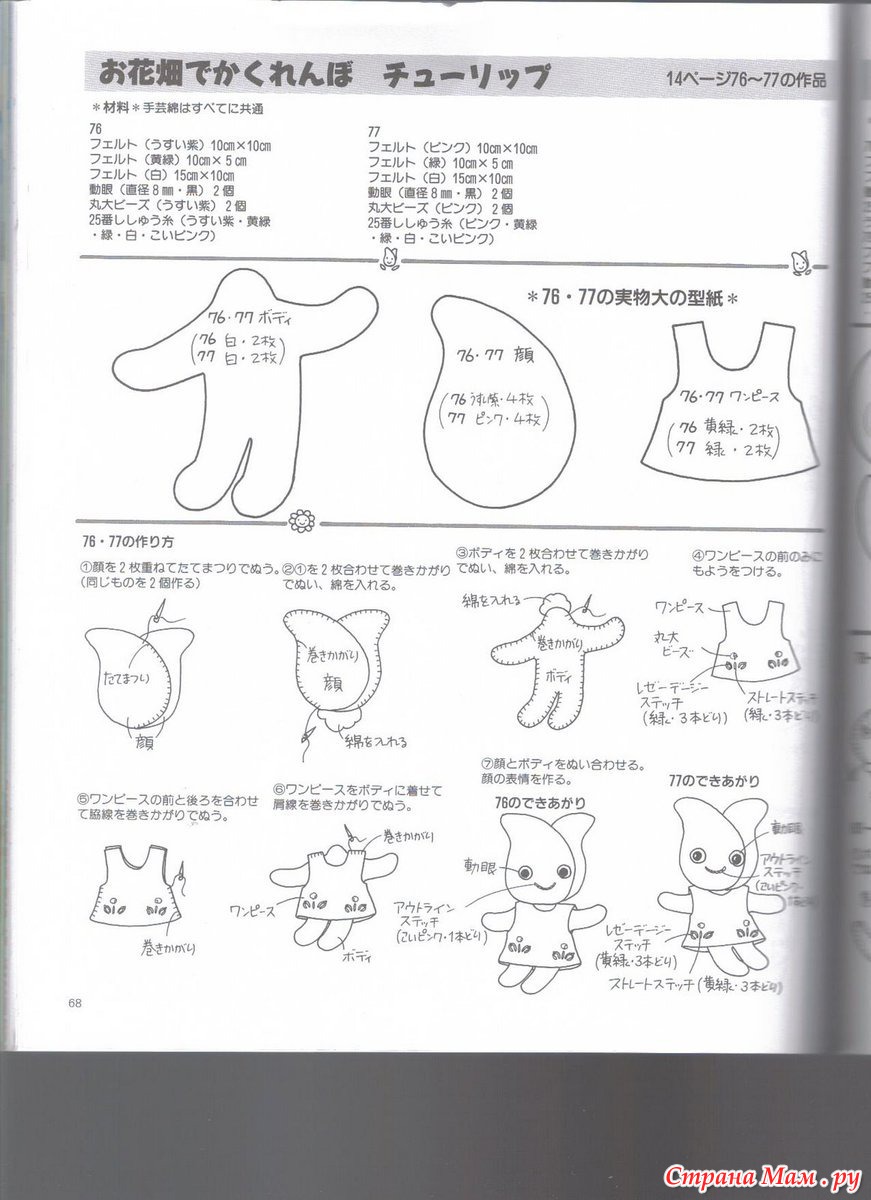 お花畑でかくれんぼ　チューリップ
14ページ76〜77の作品
＊材料＊手芸綿はすべてに共通
76
フェルト（うすい紫）10cm×10cm
フェルト（黄緑）10cm×5cm
フェルト（白）15cm×10cm
動眼（直径8mm・黒）2個
丸大ビーズ（うすい紫）2個
25番ししゅう糸（うすい紫・黄緑
・緑・白・こいピンク）
77
フェルト（ピンク）10cm×10cm
フェルト（緑）10cm×5cm
フェルト（白）15cm×10cm
動眼（直径8mm・黒）2個
丸大ビーズ（ピンク）2個
25番ししゅう糸（ピンク・黄緑
・緑・白・こいピンク）
＊76・77の実物大の型紙＊
76・77 ボディ
76 白・2枚
77 白・2枚
76・77 顔
76 うすい紫・4枚
77 ピンク・4枚
76・77 ワンピース
76 黄緑・2枚
77 緑・2枚
76・77の作り方
①顔を2枚重ねてたてまつりでぬう。
（同じものを2個作る）
たてまつり
顔
②①を2枚合わせて巻きかがり
でぬい、綿を入れる。
巻きかがり
顔
綿を入れる
③ボディを2枚合わせて巻きかがり
でぬい、綿を入れる。
綿を入れる
巻きかがり
ボディ
④ワンピースの前のみに
もようをつける。
ワンピース
丸大
ビーズ
レゼーデージー
ステッチ
（緑・3本どり）
ストレートステッチ
（緑・3本どり）
⑤ワンピースの前と後ろを合わせ
て脇線を巻きかがりでぬう。
巻きかがり
⑥ワンピースをボディに着せて
肩線を巻きかがりでぬう。
巻きかがり
ワンピース
ボディ
⑦顔とボディをぬい合わせる。
顔の表情を作る。
76のできあがり
動眼
アウトライン
ステッチ
（こいピンク・1本どり）
77のできあがり
動眼
アウトライン
ステッチ
（こいピンク・
1本どり）
レゼーデージー
ステッチ
（黄緑・3本どり）
ストレートステッチ（黄緑・3本どり）
68
Страна Мам.ру